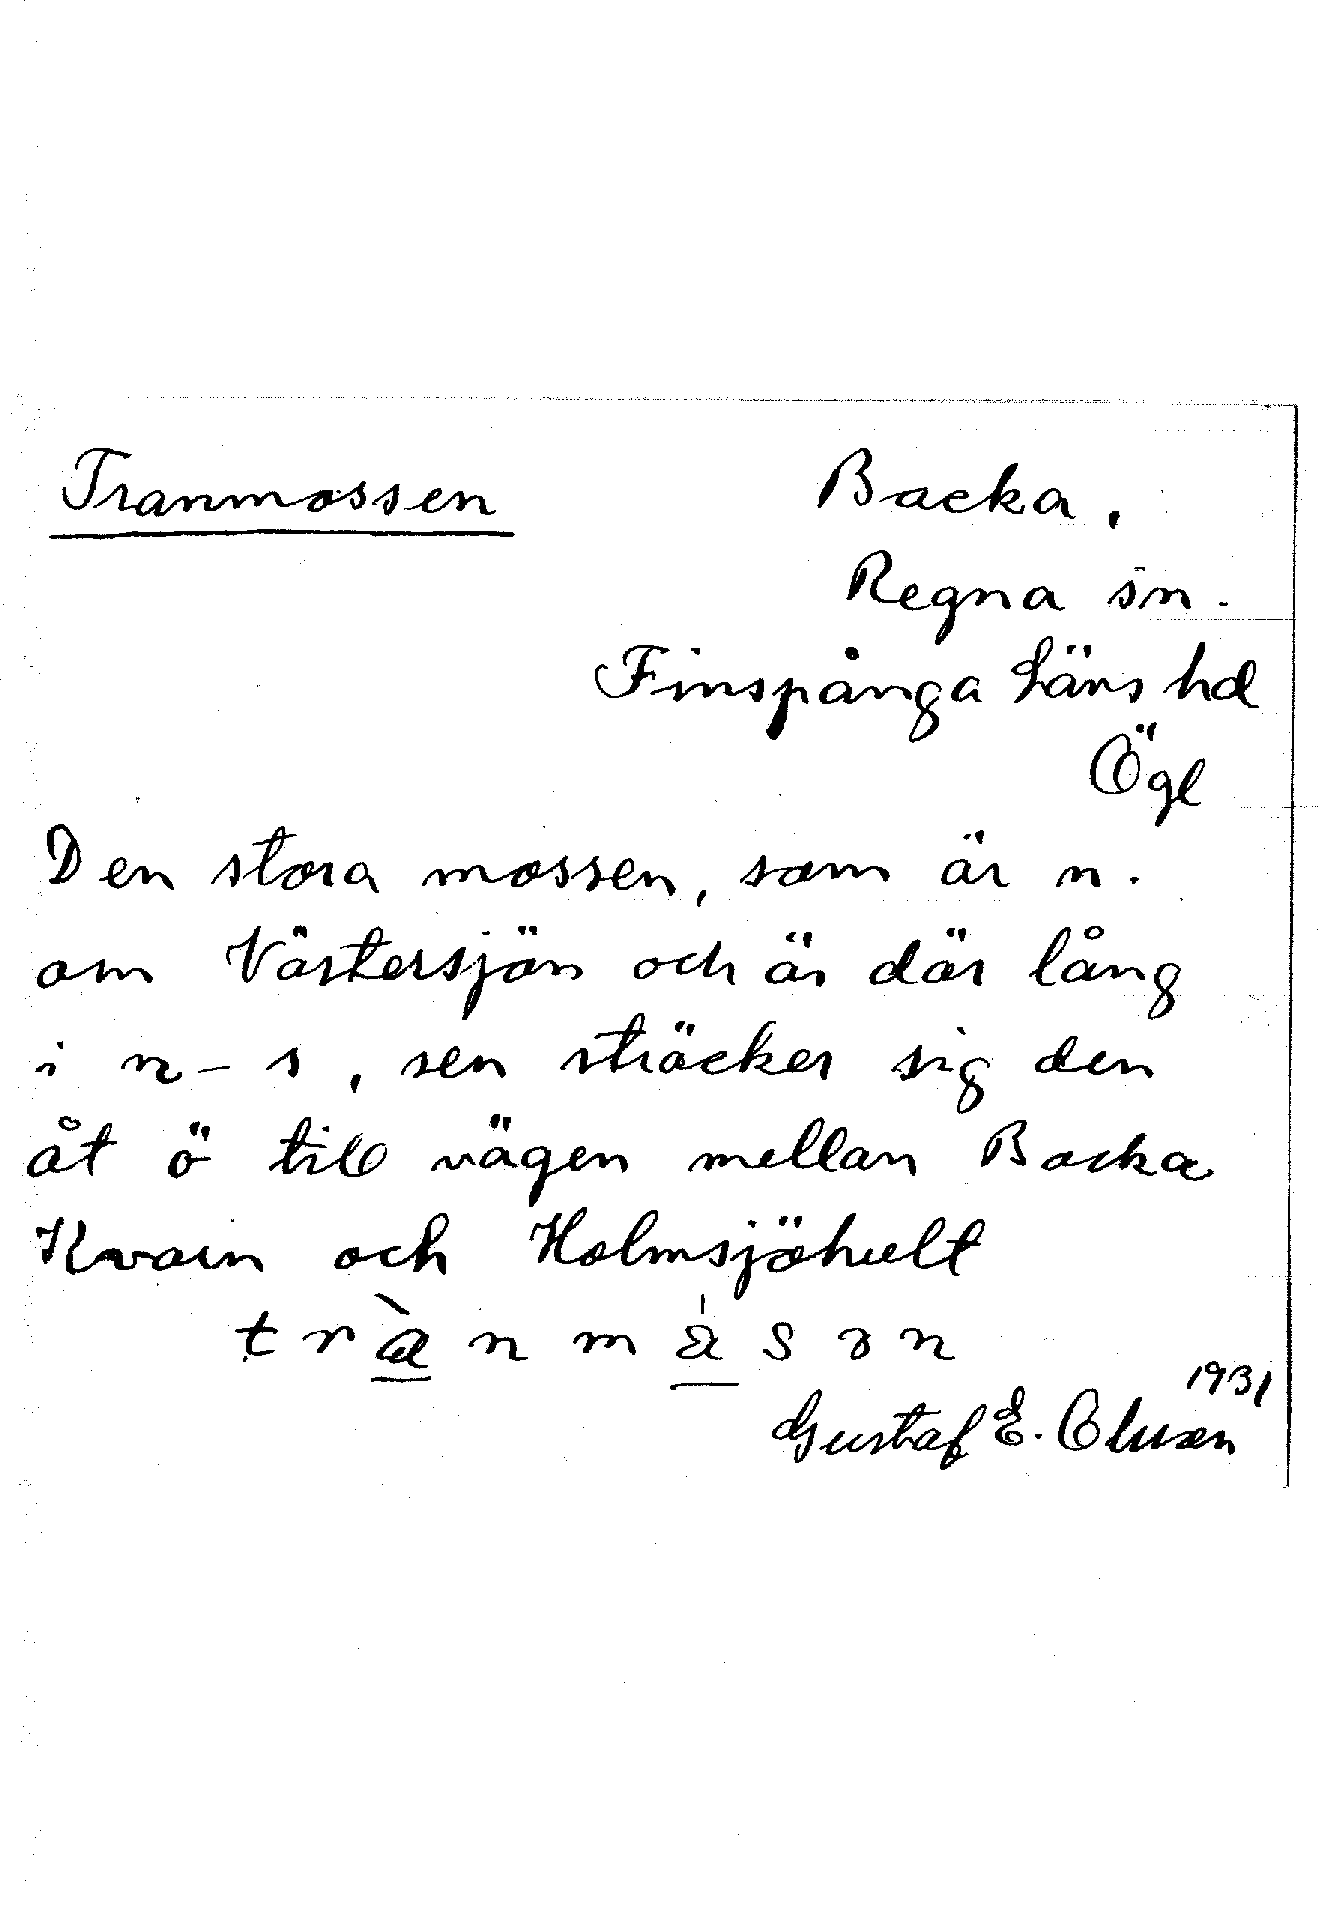 Tranmossen
Backa,
Regna sn.
Finspånga läns hd
Ögl
Den stora mossen, som är n.
om Västersjön och är där lång
i n – s, sen sträcker sig den
åt ö till vägen mellan Backa
Kvarn och Holmsjöhult
trànmåsən
1931
Gustaf E.